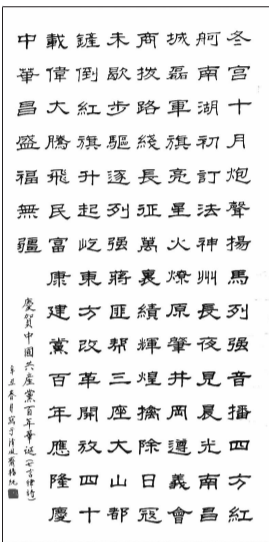 冬宫十月炮聲揚馬列强音播四方紅
舸南湖初訂法神州長夜見晨光南昌
城磊軍旗亮星火燎原肇井岡遵義會
商拨路綫長征萬裏績輝煌擒除日寇
未歇步驅逐列强蔣匪帮三座大山都
鏟倒紅旗升起屹東方改革開放四十
載偉大騰飛民富康建黨百年應隆慶
中華昌盛福無疆
慶賀中國共産黨百年華誕(七言律詩)
辛丑春月寫于清風齋